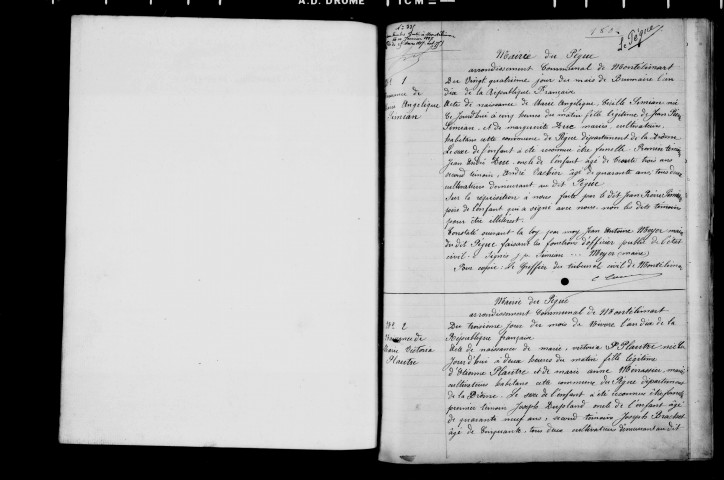 A.D. DROME
1 C M
Le Pègue
Mairie du Pègue
arrondissement Communal de Montélimart
N° 1
Naissance de
Marie Angélique
Simian
Du Vingt quatrième jour du mois de Brumaire l'an
dix de la République Française
Acte de naissance de Marie Angélique, Simian née
le jourd'hui à cinq heures du matin fille légitime de Jean
Simian, et de marguerite mariés, cultivateurs,
habitans cette commune du Pègue département de la Drome
Le sexe de l'enfant a été reconnu être femelle. Premier témoin
Jean André oncle de l'enfant âgé de trente trois ans
second témoin, André âgé de quarante ans, tous deux
cultivateurs demeurant au dit Pègue
Sur la réquisition à nous faite par le dit Jean Pierre Simian
père de l'enfant qui a signé avec nous, non les dits témoins
pour être illiterés.
Constaté suivant la loy, par moy Jean Antoine Moyer maire
du dit Pègue faisant les fonctions d'officier public de l'état
civil. Signés J. p. Simian Moyer (maire)
Pour copie: Le Greffier du tribunal civil de Montélimar
Mairie du Pègue
arrondissement Communal de Montélimart
N° 2
Naissance de
Marie Victoire
Plantre
Du troisième jour du mois de Nivose l'an dix de la
République française
Acte de naissance de marie, victoire Plantre née le
jour d'hui à deux heures du matin fille légitime
d'Etienne Plantre et de marie anne mariés
cultivateurs habitans cette commune du Pègue département
de la Drome. Le sexe de l'enfant a été reconnu être femelle
premier témoin Joseph oncle de l'enfant âgé
de quarante neuf ans, second témoin Joseph
âgé de cinquante, tous deux cultivateurs demeurant au dit